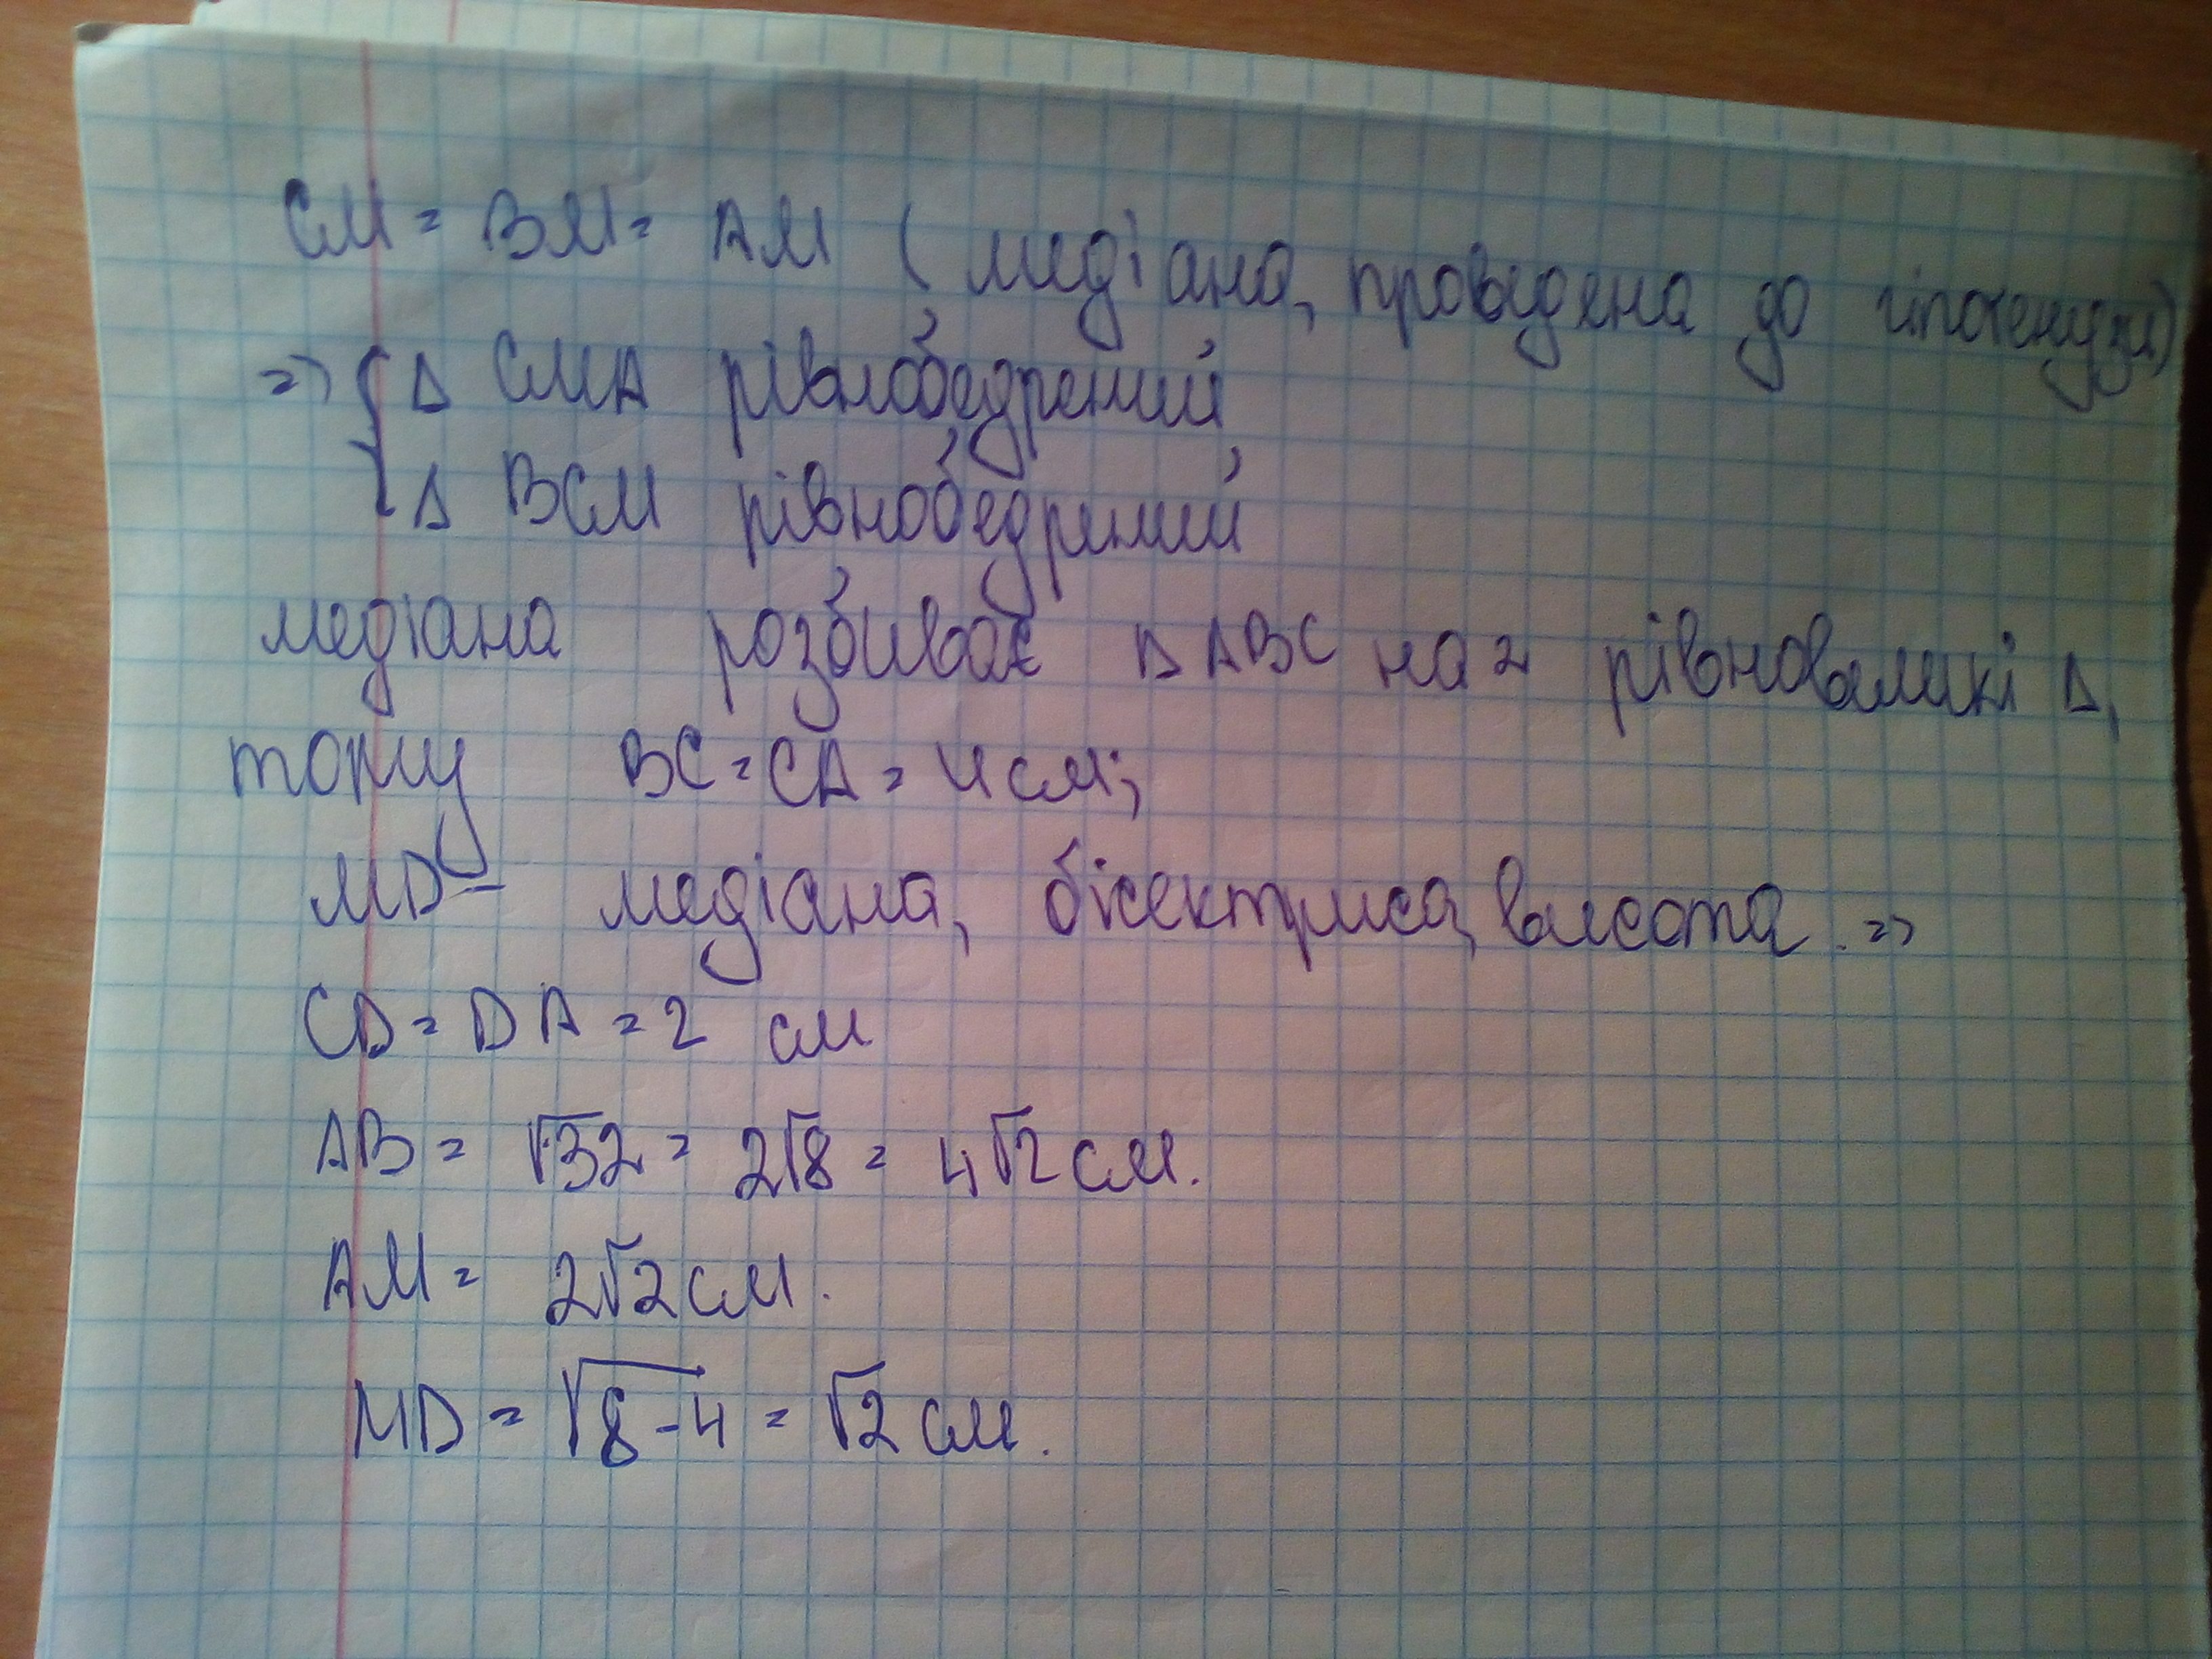 CM = BM = AM (медіана, проведена до гіпотенузи)
=> { Δ CMA рівнобедрений
Δ BCM рівнобедрений
медіана розбиває Δ ABC на 2 рівновеликі Δ,
тому BC = CA = 4 см;
MD – медіана, бісектриса, висота. =>
CD = DA = 2 см
AB = √32 = 2√8 = 4√2 см.
AM = 2√2 см.
MD = √8-4 = √2 см.